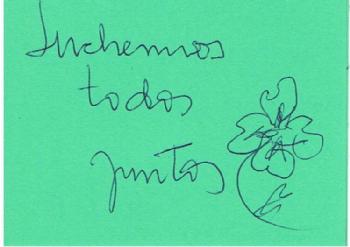 Luchemos
todos
juntos